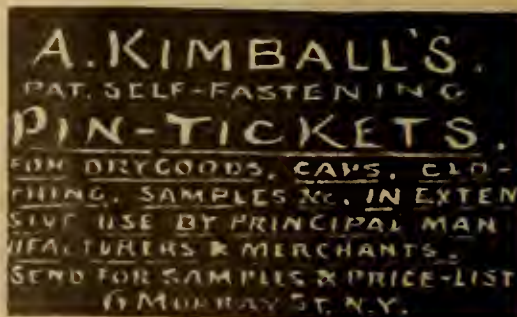 A. KIMBALL'S.
PAT. SELF-FASTENING
PIN-TICKETS.
FOR DRYGOODS, CAPS, CLO-
THING, SAMPLES &c. IN EXTEN
SIVE USE BY PRINCIPAL MAN
UFACTURERS & MERCHANTS.
SEND FOR SAMPLES & PRICE-LIST
6 MURRAY ST. N.Y.